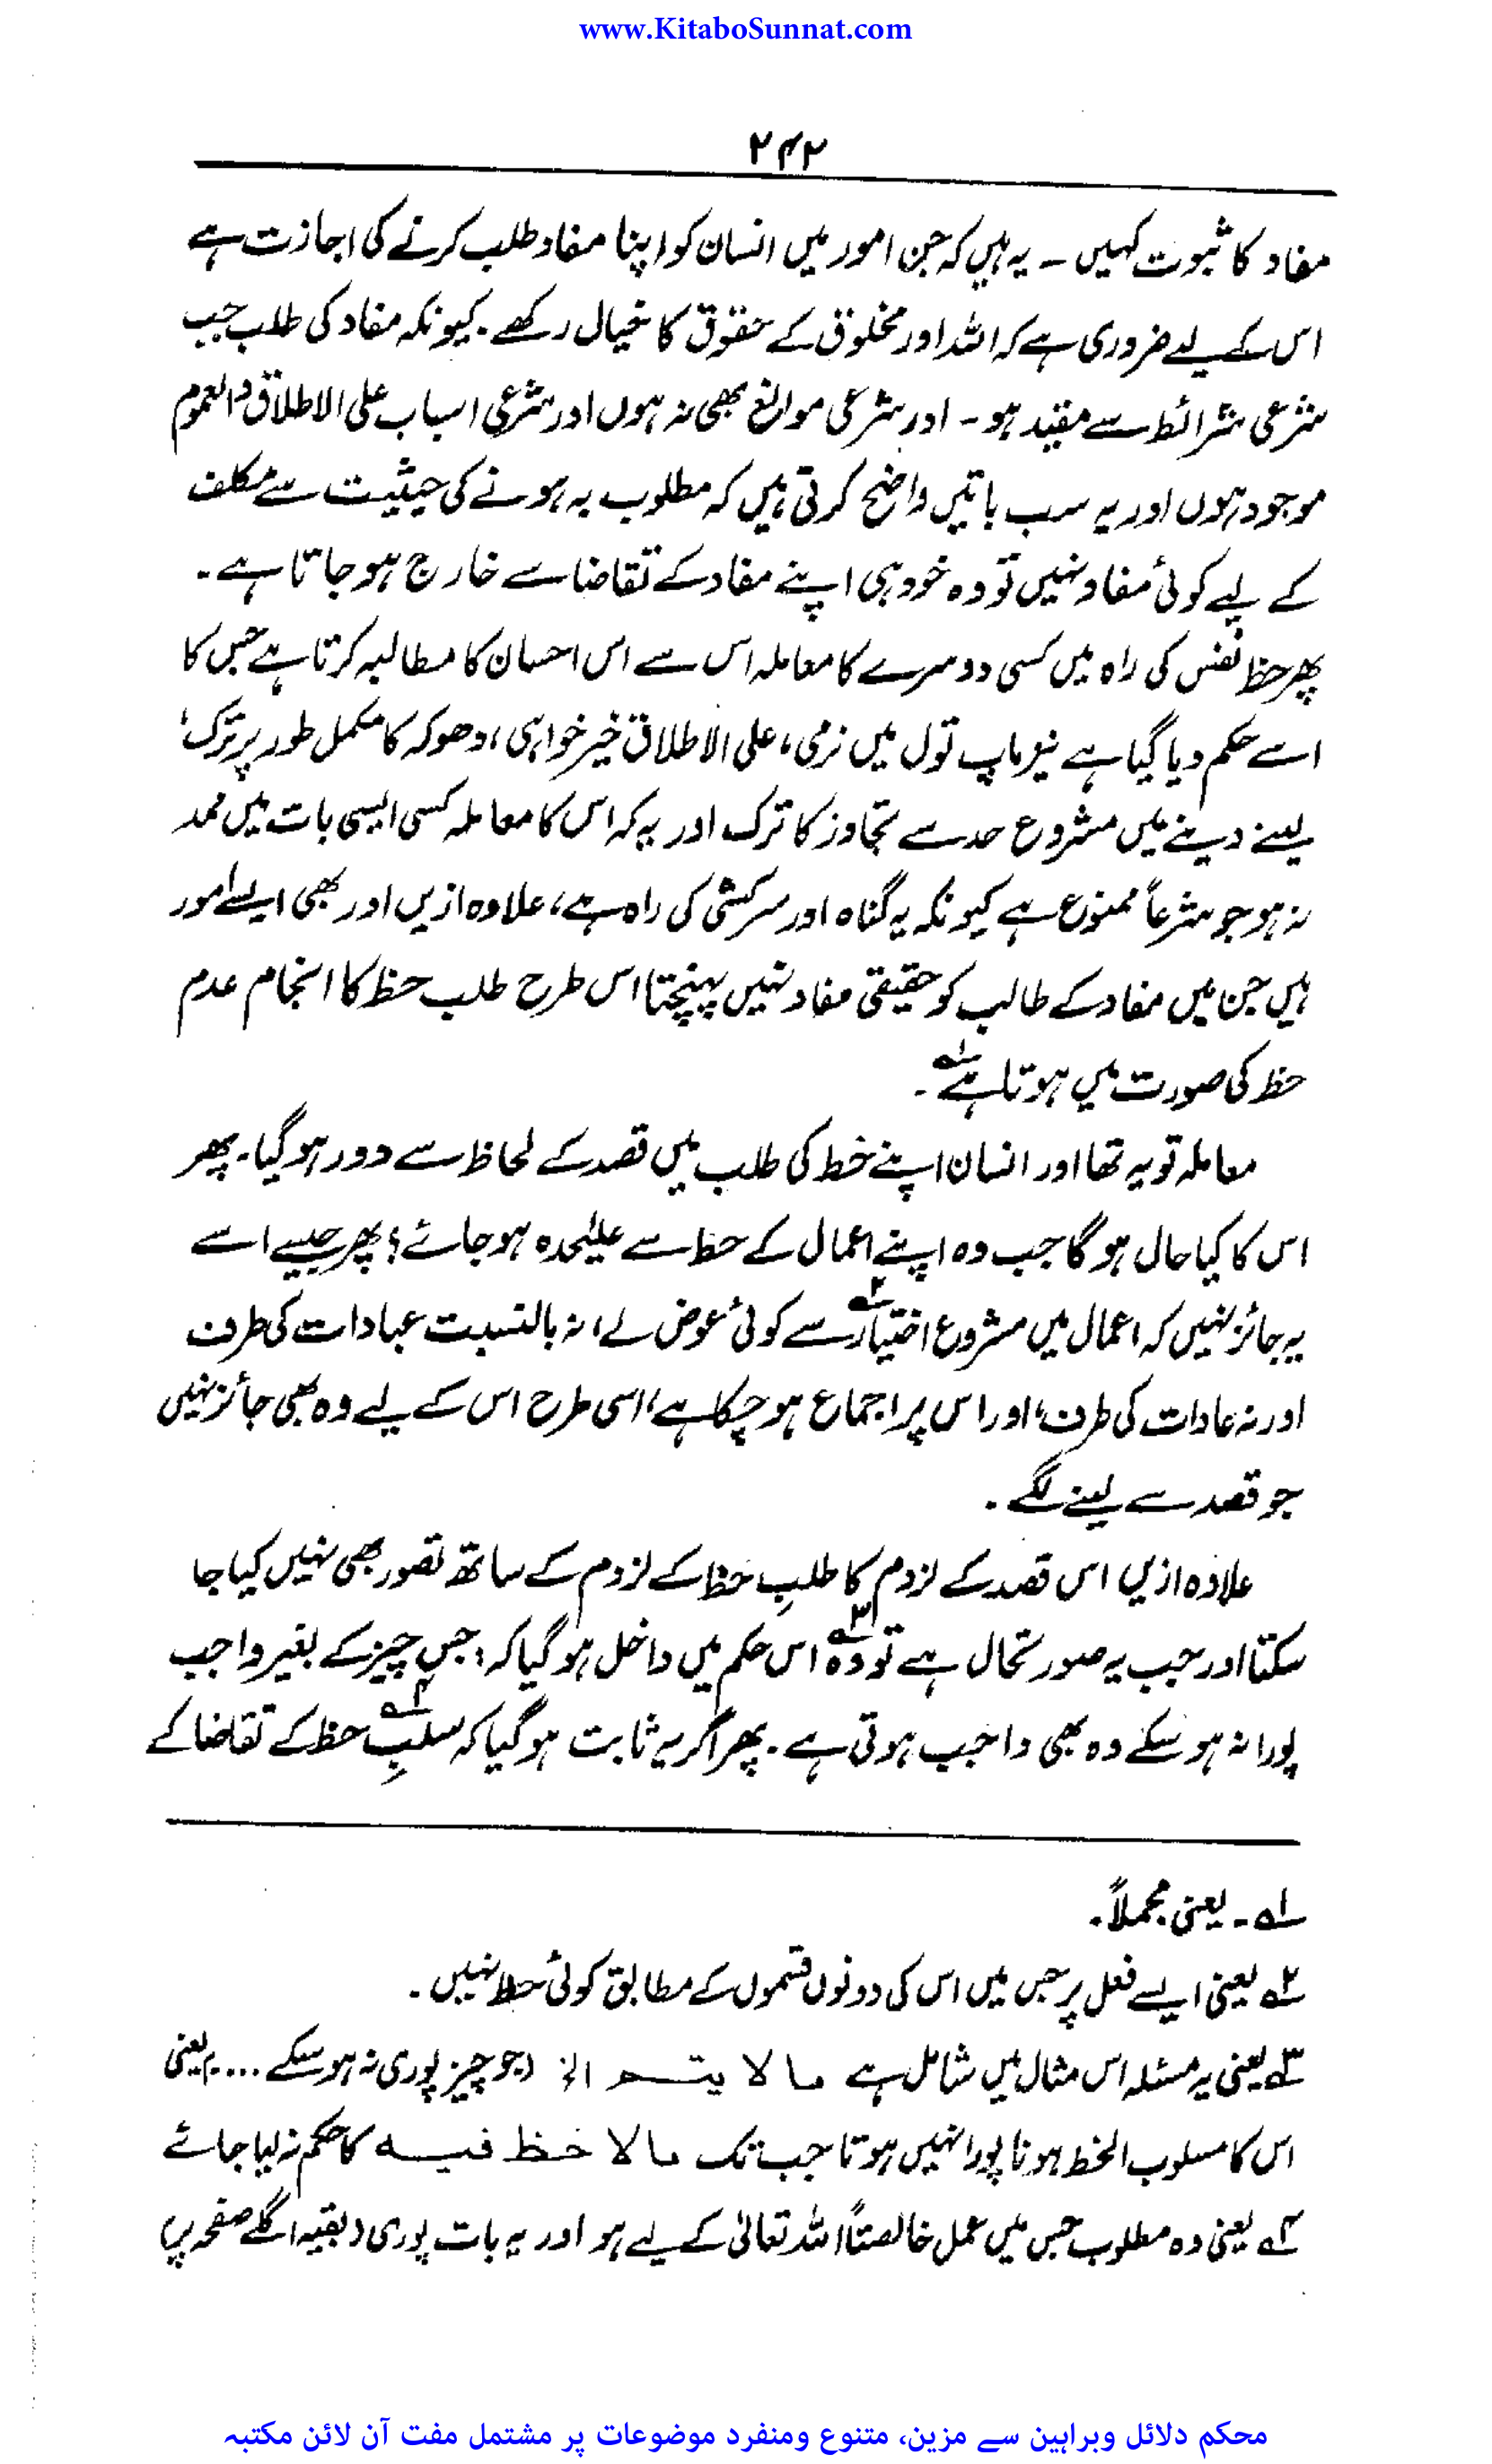 www.KitaboSunnat.com
۲۴۲
مفاد کا ثبوت کہیں ۔ یہ ہیں کہ جن امور میں انسان کو اپنا مفاد طلب کرنے کی اجازت ہے
اس کے لیے ضروری ہے کہ اللہ اور مخلوق کے حقوق کا خیال رکھے ۔ کیونکہ مفاد کی طلب جب
شرعی شرائط سے مقید ہو ۔ اور شرعی موانع بھی نہ ہوں اور شرعی اسباب علی الاطلاق والعموم
موجود ہوں اور یہ سب باتیں واضح کرتی ہیں کہ مطلوب بہ ہونے کی حیثیت سے مکلف
کے لیے کوئی مفاد نہیں تو وہ خود ہی اپنے مفاد کے تقاضا سے خارج ہو جاتا ہے ۔
پھر حظ نفس کی راہ میں کسی دوسرے کا معاملہ اس سے اس احسان کا مطالبہ کرتا ہے جس کا
اسے حکم دیا گیا ہے نیز ماپ تول میں نرمی، علی الاطلاق خیر خواہی، دھوکہ کا مکمل طور پر ترک،
لینے دینے میں مشروع حد سے تجاوز کا ترک اور یہ کہ اس کا معاملہ کسی ایسی بات میں ممد
نہ ہو جو شرعاً ممنوع ہے کیونکہ یہ گناہ اور سرکشی کی راہ ہے، علاوہ ازیں اور بھی ایسے امور
ہیں جن میں مفاد کے طالب کو حقیقی مفاد نہیں پہنچتا اس طرح طلب حظ کا انجام عدم
حظ کی صورت میں ہوتا ہے ۱؎ ۔
معاملہ تو یہ تھا اور انسان اپنے خط کی طلب میں قصد کے لحاظ سے دور ہو گیا ۔ پھر
اس کا کیا حال ہو گا جب وہ اپنے اعمال کے حظ سے علیٰحدہ ہو جائے؟ پھر جیسے اسے
یہ جائز نہیں کہ اعمال میں مشروع اختیار ۲؎ سے کوئی عوض لے، نہ بالنسبت عبادات کی طرف
اور نہ عادات کی طرف، اور اس پر اجماع ہو چکا ہے، اسی طرح اس کے لیے وہ بھی جائز نہیں
جو قصد سے لینے لگے ۔
علاوہ ازیں اس قصد کے لزوم کا طلبِ حظ کے لزوم کے ساتھ تصور بھی نہیں کیا جا
سکتا اور جب یہ صورتحال ہے تو وہ ۳؎ اس حکم میں داخل ہو گیا کہ : جس چیز کے بغیر واجب
پورا نہ ہو سکے وہ بھی واجب ہوتی ہے ۔ پھر اگر یہ ثابت ہو گیا کہ سلبِ ۴؎ حظ کے تقاضا کے
۱؎ ۔ یعنی مجملاً ۔
۲؎ یعنی ایسے فعل پر جس میں اس کی دونوں قسموں کے مطابق کوئی حظ نہیں ۔
۳؎ یعنی یہ مسئلہ اس مثال میں شامل ہے مالا یتم الخ (جو چیز پوری نہ ہو سکے ....) یعنی
اس کا مسلوب الخط ہونا پورا نہیں ہوتا جب تک مالا حظ فیہ کا حکم نہ لیا جائے
۴؎ یعنی وہ مطلوب جس میں عمل خالصتاً اللہ تعالیٰ کے لیے ہو اور یہ بات پوری (بقیہ اگلے صفحہ پر)
محکم دلائل وبراہین سے مزین، متنوع ومنفرد موضوعات پر مشتمل مفت آن لائن مکتبہ